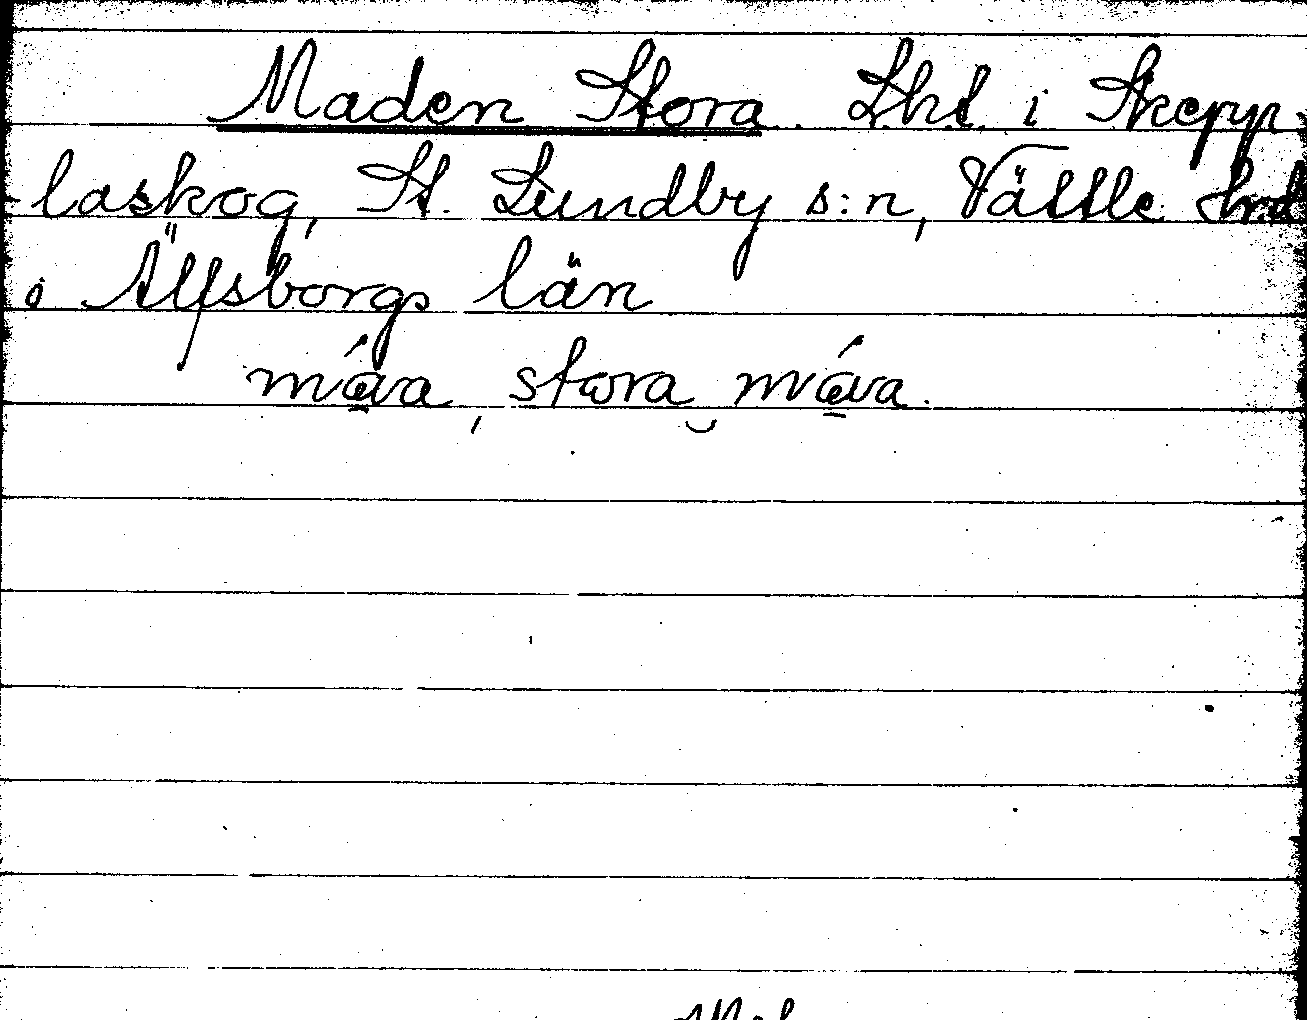 Maden Stora. Lht. i Skepp-
laskog, St. Lundby s:n, Vättle hrd
i Älfsborgs län
máva, stora máva.